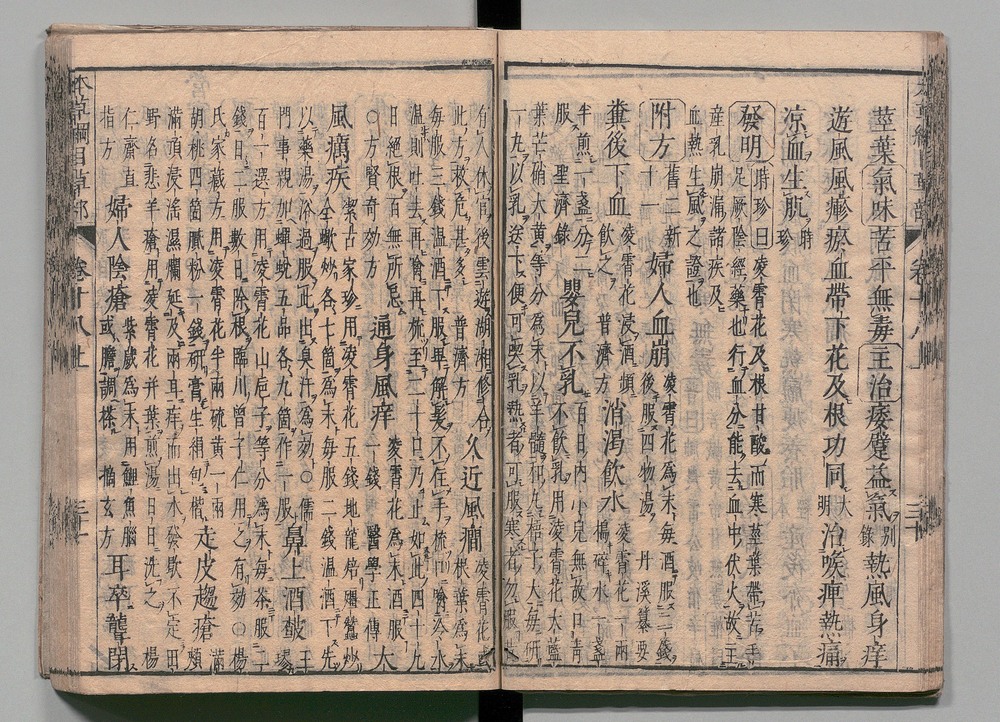 莖葉氣味苦平無毒主治痿躄益氣別錄熱風身痒
遊風風癮瘀血帶下花及根功同大明治喉痺熱痛
凉血生肌時珍
發明時珍曰凌霄花及根甘酸而寒莖葉帶苦手
足厥陰經藥也行血分能去血中伏火故主
產乳崩漏諸疾及
血熱生風之證也
附方舊二新十一婦人血崩凌霄花為末每酒服二錢後服四物湯丹溪纂要
糞後下血凌霄花浸酒頻飲之普濟方消渴飲水凌霄花一兩搗碎水一盞
半煎一盞分二服聖濟錄嬰兒不乳百日內小兒無故口青不飲乳用凌霄花大藍
葉芒硝大黃等分為末以羊髓和丸梧子大每研
一丸以乳送下便可喫乳熱者可服寒者勿服
有人休官後雲遊湖湘修合此方救危甚多普濟方久近風癇凌霄花或根葉為末
每服三錢溫酒下服畢解髮不住手梳口噙冷水
溫則吐去再噙再梳至二十口乃止如此四十九
日絕根百無所忌○方賢奇効方通身風痒凌霄花為末酒服一錢醫學正傳大
風癘疾潔古家珍用凌霄花五錢地龍焙殭蠶炒全蠍炒各七箇為末每服二錢溫酒下先
以藥湯浴過服此出臭汗為効○儒門事親加蟬蛻五品各九箇作一服鼻上酒皶王璆
百一選方用凌霄花山巵子等分為末每茶服二
錢日二服數日除根臨川曾子仁用之有効○楊
氏家藏方用凌霄花半兩硫黃一兩胡桃四箇膩粉一錢研膏生絹包楷走皮趨瘡頰
滿頭浸淫濕爛延及兩耳痒而出水發歇不定田
野名悲羊瘡用凌霄花并葉煎湯日日洗之楊
仁齋直指方婦人陰瘡紫葳為末用鯉魚腦或膽調搽摘玄方耳卒聾閉
本草綱目草部
卷十八上
三十一